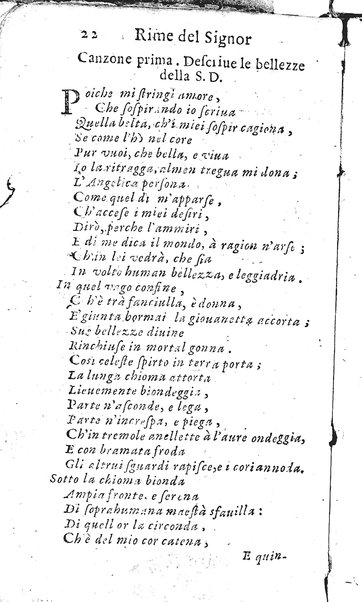 22 Rime del Signor
Canzone prima. Descriue le bellezze
della S. D.
Poiche mi stringi amore,
Che sospirando io scriua
Quella beltà, ch'i miei sospir cagiona,
Se come l'hò nel core
Pur vuoi, che bella, e viua
Io la ritragga, almen tregua mi dona;
L'Angelica persona
Come quel dì m'apparse,
Ch'accese i miei desiri,
Dirò, perche l'ammiri,
E di me dica il mondo, à ragion n'arse;
Ch'in lei vedrà, che sia
In volto human bellezza, e leggiadria.
In quel vago confine,
C'h'è trà fanciulla, è donna,
E giunta hormai la giouanetta accorta;
Sue bellezze diuine
Rinchiuse in mortal gonna.
Così celeste spirto in terra porta;
La lunga chioma attorta
Lieuemente biondeggia,
Parte n'asconde, e lega,
Parte n'increspa, e piega,
Ch'in tremole anellette à l'aure ondeggia,
E con bramata froda
Gli altrui sguardi rapisce, e i cori annoda.
Sotto la chioma bionda
Ampia fronte, e serena
Di soprahumana maestà sfauilla:
Di quell'or la circonda,
Ch'è del mio cor catena,
E quin-